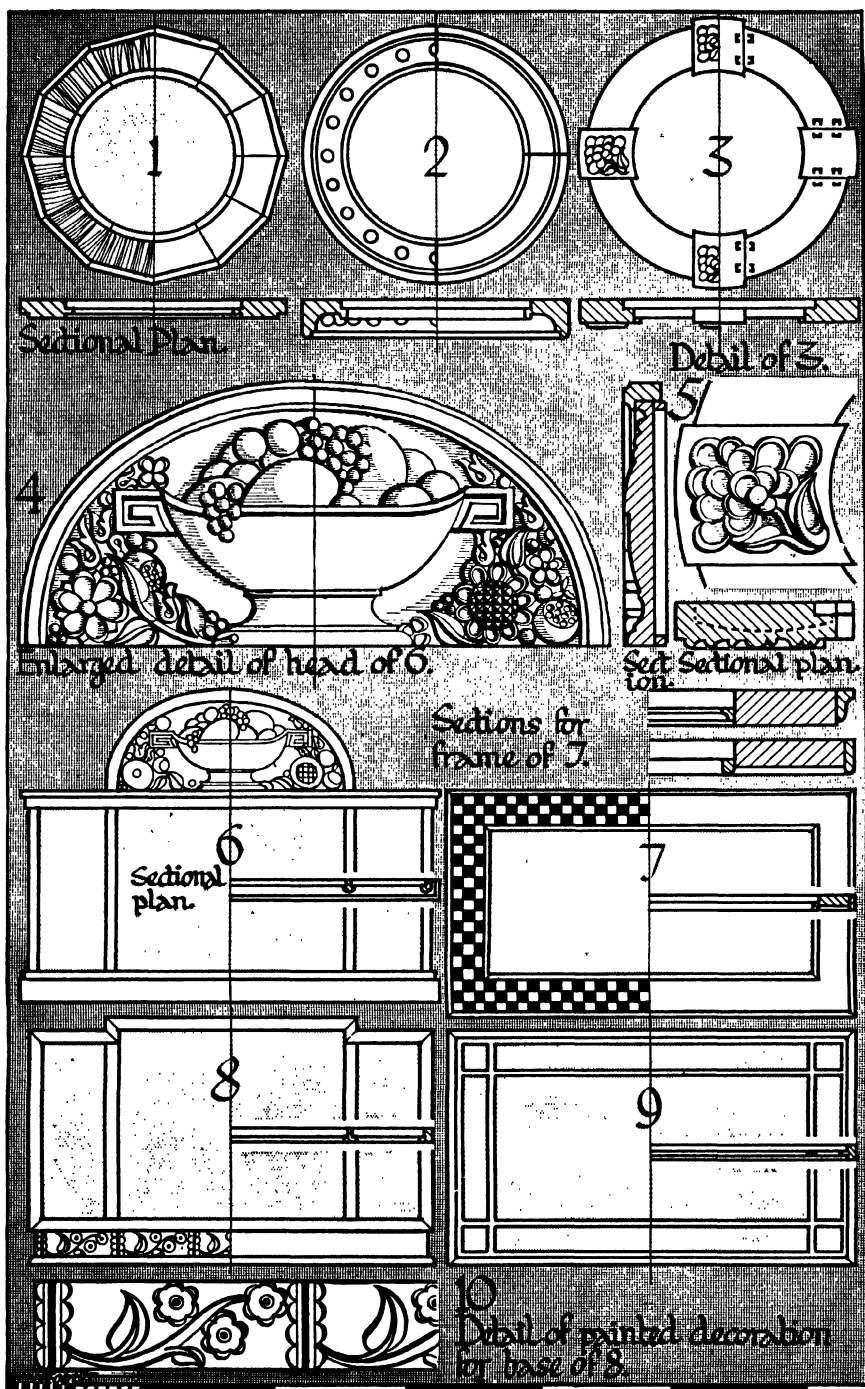 1
2
3
Sectional Plan.
Detail of 3.
4
5
Enlarged detail of head of 6.
Sect
ion.
Sectional plan.
Sections for
frame of 7.
6
Sectional
plan.
7
8
9
10
Detail of painted decoration
for base of 8.